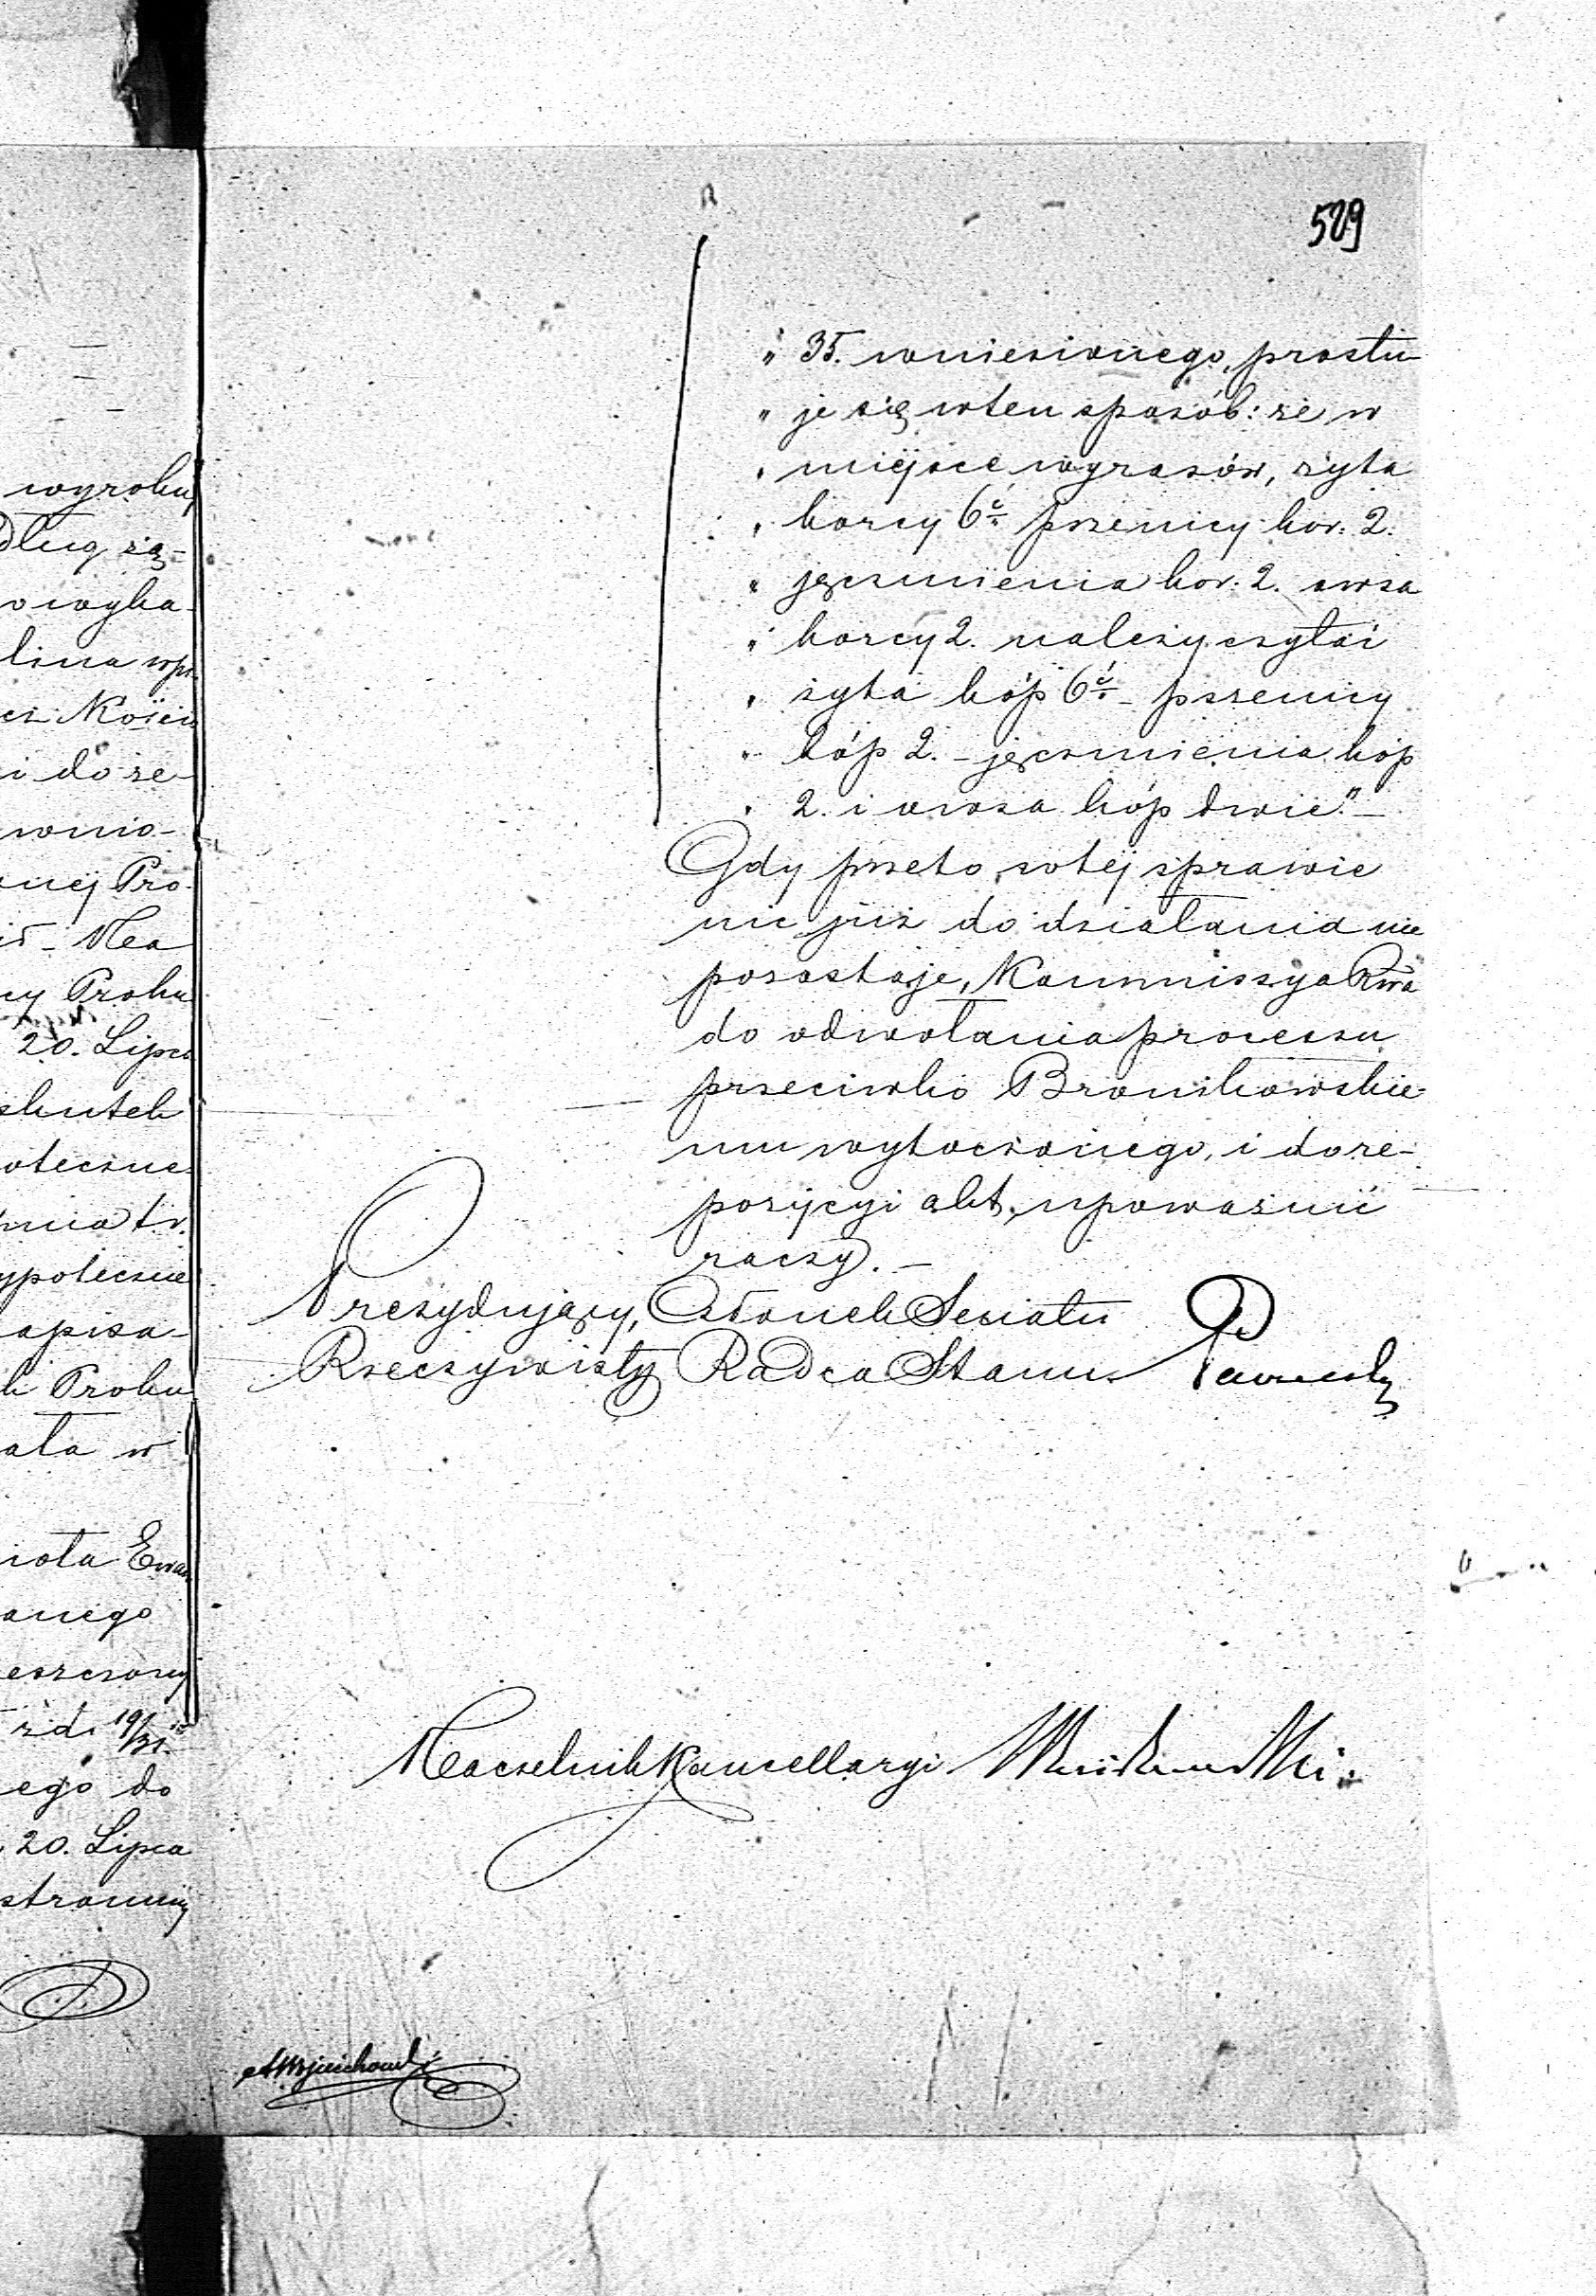 529
wyroku
dług zą-
o wyka-
lina wpr.
cz. Kości
i do re-
wnio-
nej Pro-
Na
cy Probu
20. Lipca
skutek
oteczne
mia tr.
ypoteczne
apisa-
k Probu
ała w
iola Ewan
anego
eszczony
z d. 19/31.
ego do
20. Lipca
stronnicy
„ 35. wniesionego, prostu-
„ je się w ten sposób: że w
„ miejsce wyrazów, żyta
„ korcy 6ć. pszenicy kor: 2.
„ jęczmienia kor. 2. owsa
„ korcy 2. należy czytać
„ żyta kóp 6ć. – pszenicy
„ kóp 2. – jęczmienia kóp
„ 2. i owsa kóp dwie." –
Gdy przeto w tej sprawie
nic już do działania nie
pozostaje, Kommissya Rwa
do odwołania processu
przeciwko Bronikowskie-
mu wytoczonego, i do re-
pozycyi akt, upoważnić
raczy. –
Prezydujący, Członek Senatu
Rzeczywisty Radca Stanu
Naczelnik Kancellaryi
AWojciechowski